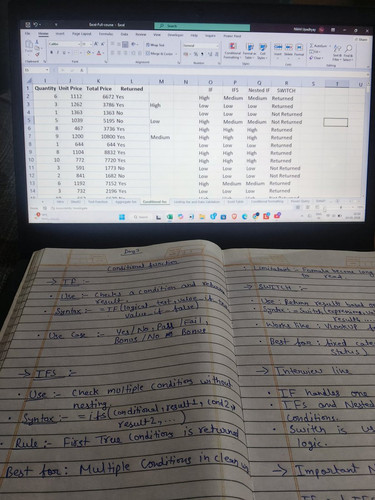 Search
File Home Insert Draw Page Layout Formulas Data Review View Developer Help Power Pivot
Quantity Unit Price Total Price Returned IF IFS Nested IF SWITCH
6 1112 6672 Yes High Medium Medium Returned
3 1262 3786 Yes High Low Low Low Returned
1 1363 1363 No Low Low Low Not Returned
5 1039 5195 No Low High Medium Medium Not Returned
8 467 3736 Yes High High High Returned
9 1200 10800 Yes Medium High High High Returned
1 644 644 Yes Low Low Low Returned
8 1104 8832 Yes High High High Returned
10 772 7720 Yes High High High Returned
3 591 1773 No Low Low Low Not Returned
2 841 1682 No Low Low Low Not Returned
6 1192 7152 Yes High Medium Medium Returned
3 732 2196 Yes Low Low Low Returned
Conditional function
→ IF :-
• Use :- Checks a condition and return
result.
• Syntax :- =IF(logical test, value_if_
value_if_false)
• Use Case :- Yes/No, Pass/Fail,
Bonus/No Bonus
→ IFS :-
• Use :- Check multiple condition without
nesting
• Syntax :- = ifs(conditional, result1, cond2,
result2, ...)
• Rule :- First True condition is returned
Best for : Multiple Conditions in clean
• Limitation : Formula becomes long
to read.
→ SWITCH :-
• Use : Return results based on
• Syntax : = Switch(expression,
results
• Works like : VLookup
• Best for : fixed
status).
→ Interview line
• IF handles one
• IFs and Nested
Conditions.
• Switch is
logic.
→ Important